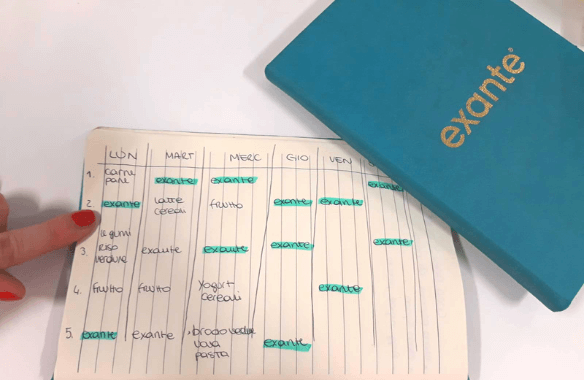 exante
LUN MART MERC GIO VEN
1. carne pane exante exante exante
2. exante latte cereali frutto exante exante
3. legumi riso verdure exante exante exante exante
4. frutto frutto yogurt cereali exante
5. exante exante brodo verdure uova pasta exante